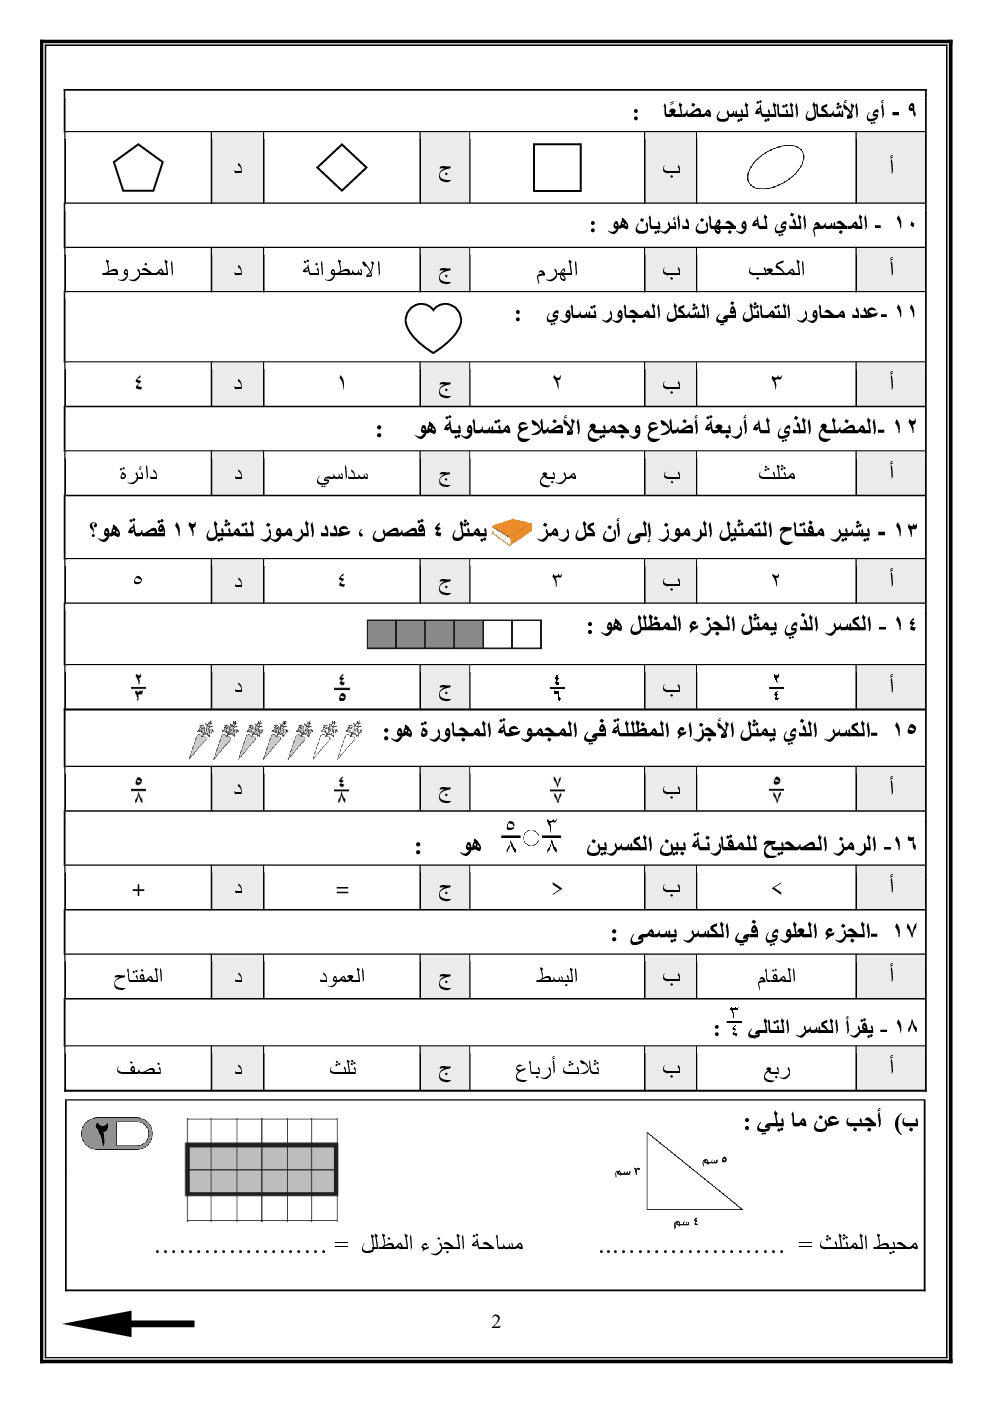 ٩ - أي الأشكال التالية ليس مضلعًا :
أ ب ج د
١٠ - المجسم الذي له وجهان دائريان هو :
أ المكعب ب الهرم ج الاسطوانة د المخروط
١١ -عدد محاور التماثل في الشكل المجاور تساوي :
أ ٣ ب ٢ ج ١ د ٤
١٢ -المضلع الذي له أربعة أضلاع وجميع الأضلاع متساوية هو :
أ مثلث ب مربع ج سداسي د دائرة
١٣ - يشير مفتاح التمثيل الرموز إلى أن كل رمز يمثل ٤ قصص ، عدد الرموز لتمثيل ١٢ قصة هو؟
أ ٢ ب ٣ ج ٤ د ٥
١٤ - الكسر الذي يمثل الجزء المظلل هو :
أ ٢/٤ ب ٤/٦ ج ٤/٥ د ٢/٣
١٥ -الكسر الذي يمثل الأجزاء المظللة في المجموعة المجاورة هو:
أ ٥/٧ ب ٧/٧ ج ٤/٨ د ٥/٨
١٦- الرمز الصحيح للمقارنة بين الكسرين ٣/٨ ○ ٥/٨ هو :
أ < ب > ج = د +
١٧ -الجزء العلوي في الكسر يسمى :
أ المقام ب البسط ج العمود د المفتاح
١٨ - يقرأ الكسر التالى ٣/٤ :
أ ربع ب ثلاث أرباع ج ثلث د نصف
ب) أجب عن ما يلي :
٢
٥ سم
٣ سم
٤ سم
محيط المثلث = ........................ مساحة الجزء المظلل = .....................
2